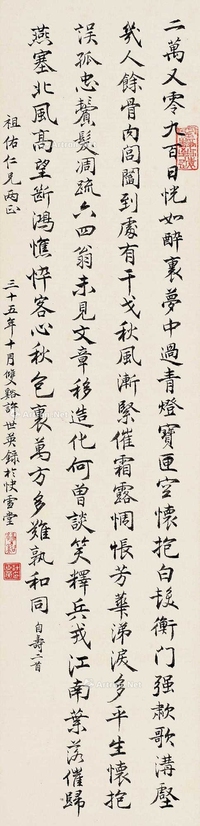 二萬又零九百日恍如醉裏夢中過青燈寶匣空懷抱白髮衡門强歗歌溝壑
幾人餘骨肉閭閻到處有干戈秋風漸緊催霜露惆悵芳華涕淚多平生懷抱
誤孤忠鬢髮凋疏六四翁未見文章移造化何曾談笑釋兵戎江南葉落催歸
燕塞北風高望斷鴻憔悴客心秋色裏萬方多難孰和同 自壽二首
祖佑仁兄兩正 三十五年十月雙谿許世英錄於快雪堂